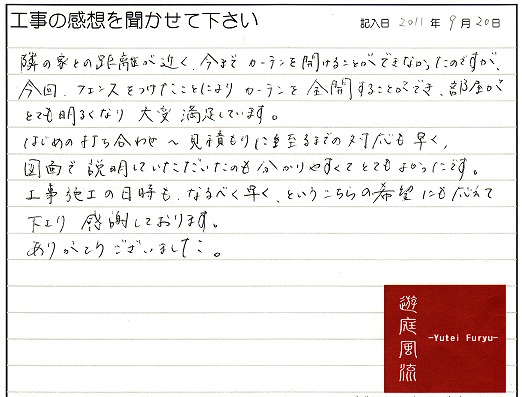 工事の感想を聞かせて下さい
記入日 2011 年 9 月 20 日
隣の家との距離が近く、今まで カーテンを開けることができなかったのですが、
今回、フェンスをつけたことにより カーテンを 全開することができ、部屋が
とても明るくなり 大変 満足しています。
はじめの打ち合わせ〜見積もりに至るまでの対応も早く、
図面で説明していただいたのも分かりやすくてとてもよかったです。
工事施工の日時も、なるべく早く、というこちらの希望にも応えて
下さり 感謝しております。
ありがとうございました。
遊庭風流
-Yutei Furyu-